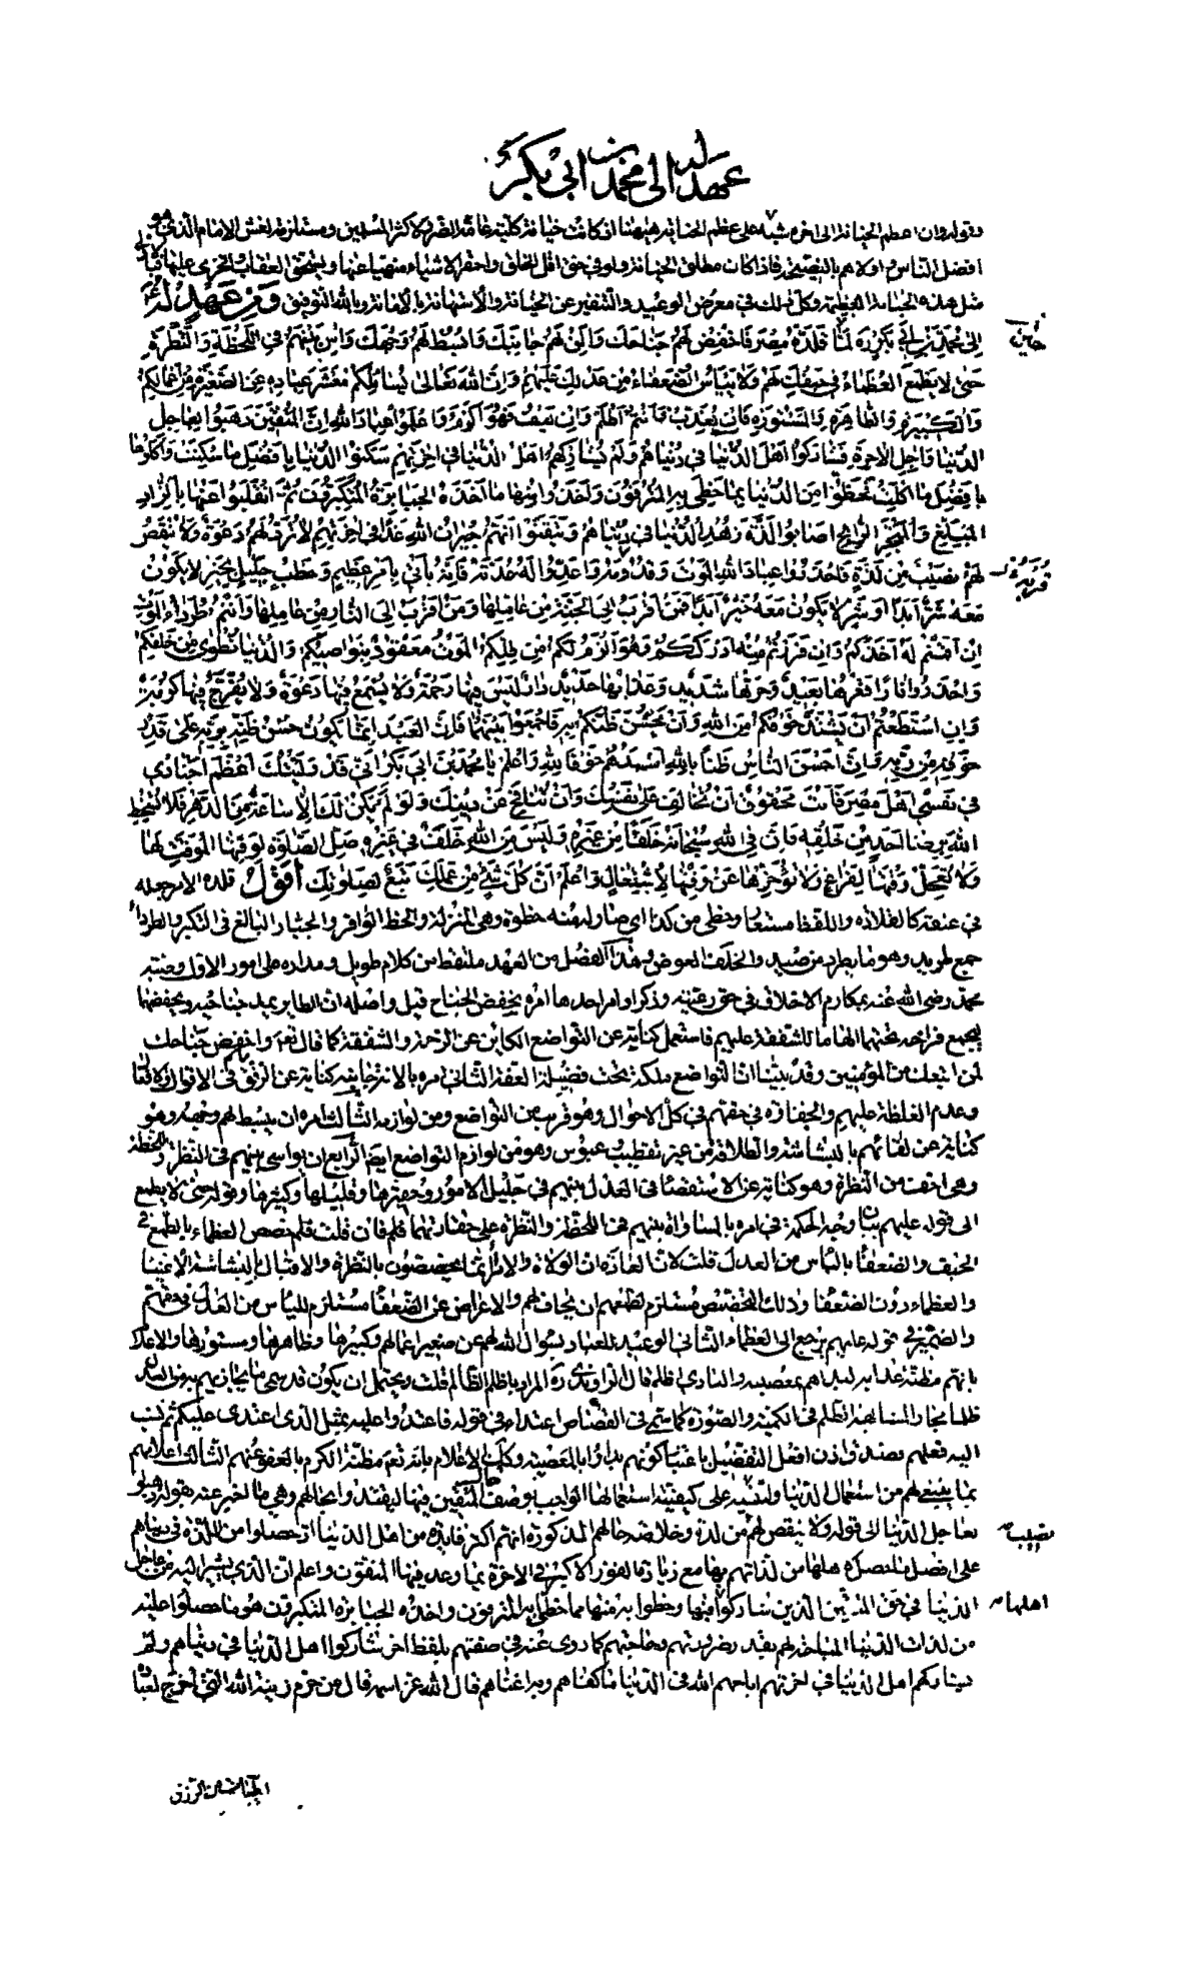 عهد له الى محمد بن ابى بكر
وقوله وان اعظم الخيانة الى اخره على عظم الخيانة هيهنا اذ كانت خيانة كلية عامة الضرر لاكثر المسلمين ومستلزمة لغش الامام الذى هو
افضل الناس واولاهم بالنصيحة فاذا كان مطلق الخيانة ولو فى حق اقل الخلق واحقر الاشياء منهيا عنها ويستحق العقاب والخزى عليها فبالاولى
مثل هذه الخيانة العظيمة وكل ذلك فى معرض الوعيد والتنفير عن الخيانة والاستهانة بالامانة وبالله التوفيق ومن عهد له
اِلى محمد بن ابى بكر ره لما قلده مصر فاخفض لهم جناحك والن لهم جانبك وابسط لهم وجهك واس بينهم فى اللحظة والنظرة
حتى لا يطمع العظماء فى حيفك لهم ولا ييأس الضعفاء من عدلك عليهم وان الله تعالى يسائلكم معشر عباده عن الصغيرة من اعمالكم
والكبيرة والظاهرة والمستورة فان يعذب فانتم اظلم وان يعف فهو اكرم واعلموا عباد الله ان المتقين ذهبوا بعاجل
الدنيا واجل الاخرة فشاركوا اهل الدنيا فى دنياهم ولم يشاركهم اهل الدنيا فى اخرتهم سكنوا الدنيا بافضل ما سكنت واكلوها
بافضل ما اكلت فحظوا من الدنيا بما حظى به المترفون واخذوا منها ما اخذه الجبابرة المتكبرون ثم انقلبوا عنها بالزاد
المبلغ والمتجر الرابح اصابوا لذة زهد الدنيا فى دنياهم وتيقنوا انهم جيران الله غدا فى اخرتهم لا ترد لهم دعوة ولا ينقص
لهم نصيب من لذة فاحذروا عباد الله الموت وقربه واعدوا له عدته فانه يأتى بامر عظيم وخطب جليل بخير لا يكون
معه شر ابدا او شر لا يكون معه خير ابدا فمن اقرب الى الجنة من عاملها ومن اقرب الى النار من عاملها وانتم طرداء الموت
ان اقمتم له اخذكم وان فررتم منه ادرككم وهو الزم لكم من ظلكم الموت معقود بنواصيكم والدنيا تطوى من خلفكم
واحذروا نارا قعرها بعيد وحرها شديد وعذابها جديد دار ليس فيها رحمة ولا يسمع فيها دعوة ولا يفرج فيها كربة
وان استطعتم ان يشتد خوفكم من الله وان يحسن ظنكم به فاجمعوا بينهما فان العبد انما يكون حسن ظنه بربه على قدر
خوفه من ربه وان احسن الناس ظنا بالله اشدهم خوفا لله واعلم يا محمد بن ابى بكر انى قد وليتك اعظم اجنادى
فى نفسى اهل مصر فانت محقوق ان تخالف على نفسك وان تنافح عن دينك ولو لم يكن لك الا ساعة من الدهر فلا تسخط
الله برضا احد من خلقه فان فى الله سبحانه خلفا من غيره وليس من الله خلف فى غيره صل الصلوة لوقتها الموقت لها
ولا تعجل وقتها لفراغ ولا تؤخرها عن وقتها لاشتغال واعلم ان كل شئ من عملك تبع لصلوتك اقول قلده الامر جعله
فى عنقه كالقلادة واللفظ مستعار وحظى من كذا اى صار له منه حظوة وهى المنزلة والحظ الوافر والجبار البالغ فى التكبر والطرداء
جمع طريد وهو ما يطرد من صيد والخلف العوض وهذا الفصل من العهد ملتقط من كلام طويل ومداره على امور الاول وصية
محمد رضى الله عنه بمكارم الاخلاق فى حق رعيته وذكر اوامر احدها امره بخفض الجناح قيل واصله ان الطاير يمد جناحيه ويخفضهما
ليجمع فراخه تحتهما ايهاما للشفقة عليهم فاستعمل كناية عن التواضع الكاين عن الرحمة والشفقة كما قال تعالى واخفض جناحك
لمن اتبعك من المؤمنين وقد بينا ان التواضع ملكة تحت فضيلة العفة الثانى امره بالانة جانبه كناية عن الرفق بهم فى الاقوال والافعال
وعدم الغلظة عليهم والجفاوة فى حقهم فى كل الاحوال وهو قريب من التواضع ومن لوازمه الثالث امره ان يبسط لهم وجهه وهو
كناية عن لقائهم بالبشاشة والطلاقة من غير تقطيب عبوس وهو من لوازم التواضع ايضا الرابع ان يواسى بينهم فى النظرة واللحظة
وهى اخف من النظرة وهو كناية عن الاستقصاء فى العدل بينهم فى جليل الامور وحقيرها وقليلها وكثيرها وقوله حتى لا يطمع
الى قوله عليهم بيان وجه الحكمة فى امره بالمساواة بينهم فى اللحظة والنظرة على حقارتهما فان قلت فلم خصص العظماء بالطمع فى
الحيف والضعفاء بالياس من العدل قلت لان العادة ان الولاة والامراء انما يخصصون بالنظرة والاقبال بالبشاشة الاغنياء
والعظماء دون الضعفاء وذلك التخصيص مستلزم لطمعهم ان يحاف لهم والاعراض عن الضعفاء مستلزم للياس من العدل فى حقهم
والضمير فى قوله عليهم يرجع الى العظماء الثانى الوعيد للعباد بسؤال الله لهم عن صغير اعمالهم وكبيرها وظاهرها ومستورها والاعلام
بانهم مظنة عذابه لبداهم بمعصيته والبادى اظلم قال الراوندى ره المراد باظلم الظالم قلت ويحتمل ان يكون قد سمى ما يجازيهم به من العدل
ظلما مجازا لمشابهته الظلم فى الكمية والصورة كما سمى فى القصاص اعتداء فى قوله فاعتدوا عليه بمثل الذى اعتدى عليكم ثم نسب
اليه فعلهم فصدق اذن افعل التفضيل باعتبار كونهم بدأوا بالمعصية وكذلك الاعلام بانه تعالى مظنة الكرم بالعفو عنهم الثالث اعلامهم
بما ينبغى لهم من استعمال الدنيا والتنبيه على كيفية استعمالها الواجب بوصف حال المتقين فيها ليقتدوا بحالهم وهى ما اخبر عنه بقوله ذهبوا
بعاجل الدنيا الى قوله ولا ينقص لهم من لذة وخلاصة حالهم المذكورة انهم اكثر فايدة من اهل الدنيا اذ حصلوا من اللذة فى دنياهم
على افضل ما حصل اهلها من لذاتهم بها مع زيادة الفوز الاكبر فى الاخرة بما وعد فيها المتقون واعلم ان الذى يشير اليه من عاجل
الدنيا فى حق المتقين الذين شاركوا فيها وحظوا به منها مما حظى به المترفون واخذه الجبابرة المتكبرون هو ما حصلوا عليه
من لذات الدنيا المباحة لهم بقدر ضرورتهم وحاجتهم كما روى عنه فى صفتهم بلفظ اخر شاركوا اهل الدنيا فى دنياهم ولم
يشاركهم اهل الدنيا فى اخرتهم اباحهم الله فى الدنيا ما كفاهم وبه اغناهم قال الله عز اسمه قل من حرم زينة الله التى اخرج لعباده
جانبك
قربه
نصيب
اهلها
الطيبات من الرزق